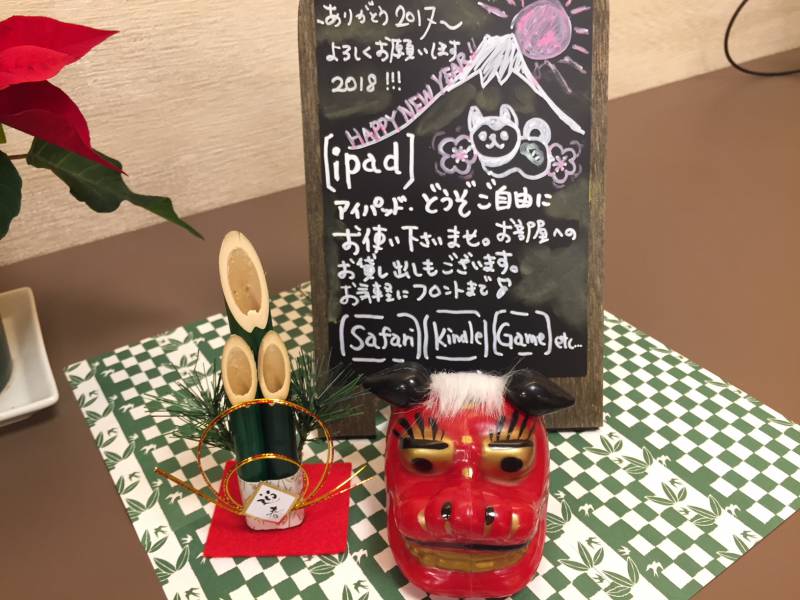 ありがとう2017〜
よろしくお願いします
2018!!!
HAPPY NEW YEAR!
[ipad]
アイパッド・どうぞご自由に
お使い下さいませ。お部屋への
お貸し出しもございます。
お気軽にフロントまで♪
[Safari][Kindle][Game]etc...
迎春